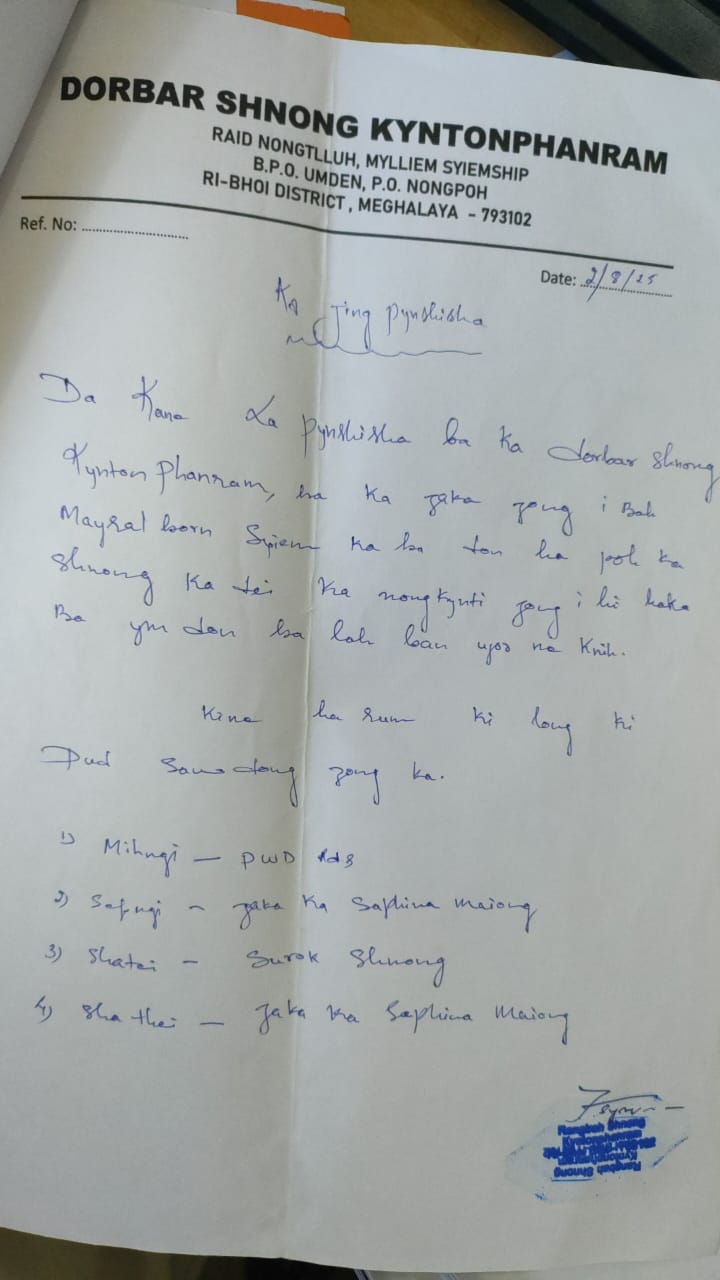 DORBAR SHNONG KYNTONPHANRAM
RAID NONGTLLUH, MYLLIEM SYIEMSHIP
B.P.O. UMDEN, P.O. NONGPOH
RI-BHOI DISTRICT, MEGHALAYA - 793102
Ref. No: ............................
Date: 2/8/25
Ka Jing pynshisha
Da Kane La pynshisha ba ka dorbar shnong
Kynton Phanram, ba ka jaka jong i Bah
Mayral born Syiem ka ba don ha poh ka
Shnong ka dei ka nongkynti jong i hi kaba
Ba ym don ba lah ban
Kine ha rum ki long ki
Pud sawdong jong ka.
1) Mihngi - PWD Rds
2) Sepngi - jaka ka Saphina Maiong
3) Shatei - Surok Shnong
4) Sha thei - Jaka ka Saphina Maiong
Rangbah Shnong